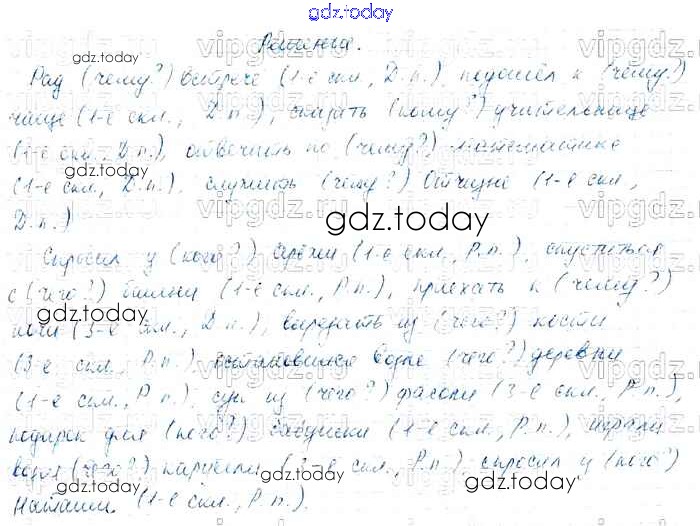 gdz.today
Решение.
Рад (чему?) встрече (1-е скл., Д.п.), подошёл к (чему?)
чаще (1-е скл., Д.п.), сказать (кому?) учительнице
(1-е скл., Д.п.), отвечать по (чему?) математике
(1-е скл., Д.п.), служить (чему?) Отчизне (1-е скл.,
Д.п.)
Спросил у (кого?) Серёжи (1-е скл., Р.п.), спуститься
с (чего?) башни (1-е скл., Р.п.), приехать к (чему?)
ночи (3-е скл., Д.п.), вырезать из (чего?) кости
(3-е скл., Р.п.), остановился возле (чего?) деревни
(1-е скл., Р.п.), суп из (чего?) фасоли (3-е скл., Р.п.),
подарок для (кого?) бабушки (1-е скл., Р.п.), играли
возле (чего?) карусели (3-е скл., Р.п.), спросил у (кого?)
Наташи. (1-е скл., Р.п.).